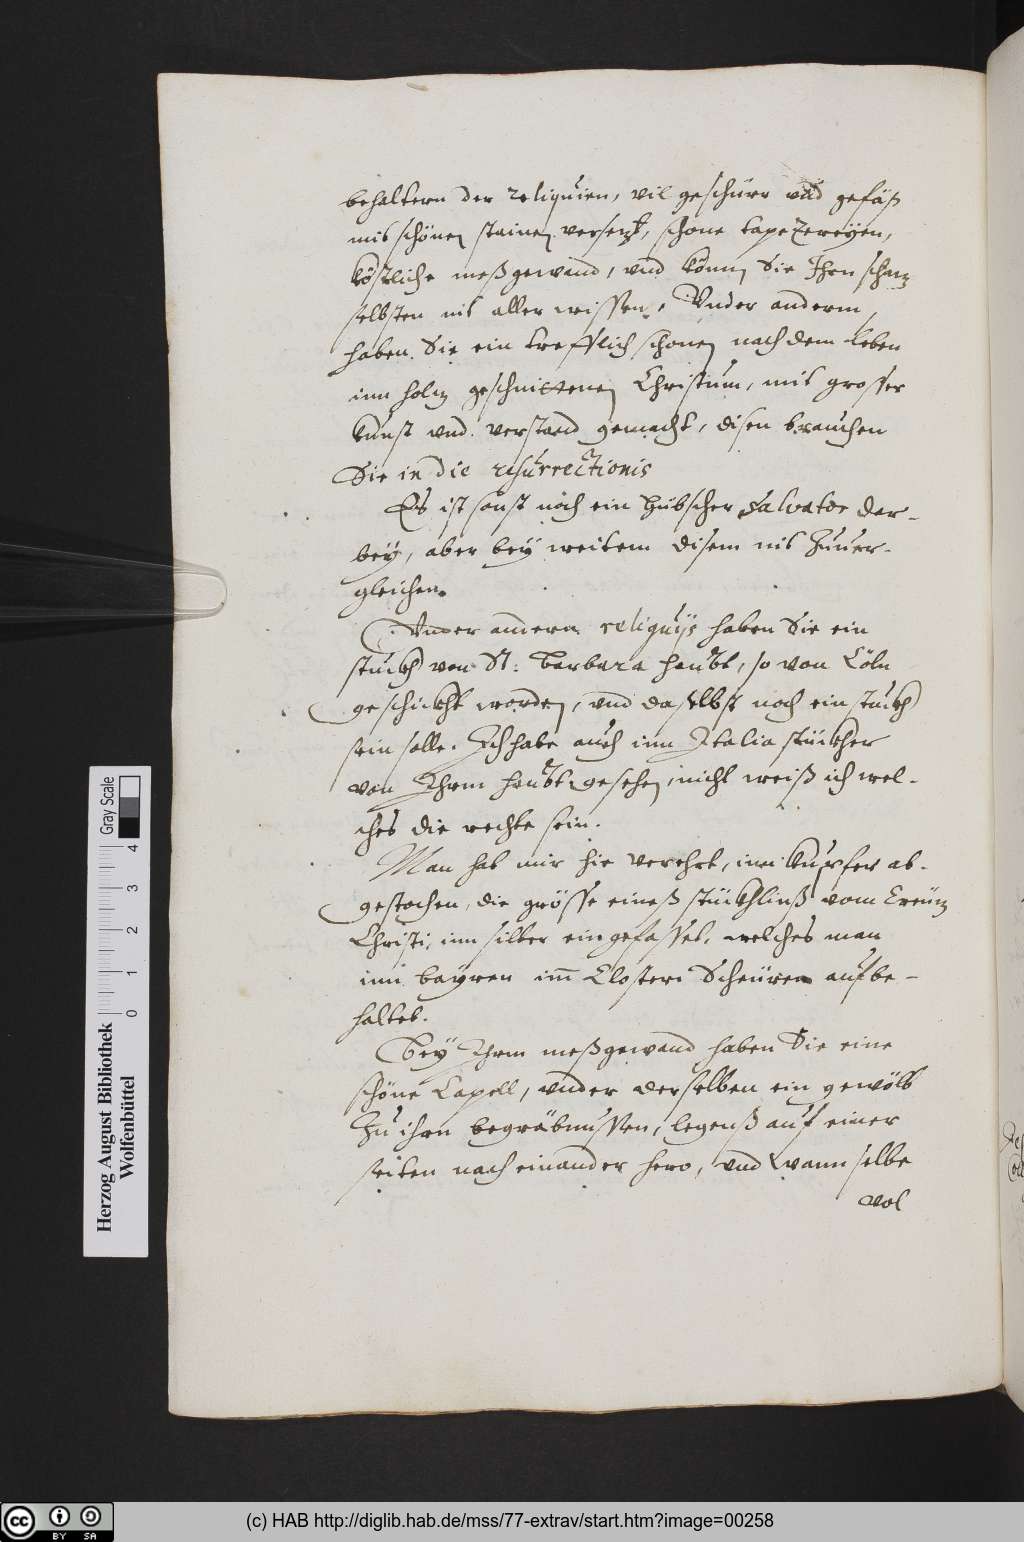 behaltern der reliquien, vil geschürr vnd gefäß
mit schönen stainen versetzt, schone tapezereyen,
köstliche meßgewand, vnd können Sie Ihrn schatz
selbsten nit aller wissen, Vnder anderm
haben Sie ein trefflich schonen nach dem leben
inn holtz geschnittenen Christum, mit grosser
kunst vnd verstand gemacht, disen brauchen
Sie in die resurrectionis
Es ist sonst noch ein hübscher salvator dar-
bey, aber bey weitem disem nit zuuer-
gleichen.
Vnder andern reliquijs haben Sie ein
stuckh von St: Barbara haubt, so von Cöln
geschickht worden, vnd daselbst noch ein stuckh
sein solle. Ich habe auch inn Italia stückher
von Ihrm haubt gesehen, nicht weiß ich wel-
ches die rechte sein.
Man hat mir hie verehrt, inn kupfer ab-
gestochen, die grösse eineß stückhlinß vom Creütz
Christi, inn silber eingefasset, welches man
inn bayren im Closter Scheüren aufbe-
haltet.
Bey Ihrm meßgewand haben Sie eine
schöne Capell, vnder derselben ein gewölb
zu ihrn begräbnussen, legenß auf einer
seiten nach einander hero, vnd wann selbe
vol
Gray Scale
0 1 2 3 4
Herzog August Bibliothek
Wolfenbüttel
cc BY SA
(c) HAB http://diglib.hab.de/mss/77-extrav/start.htm?image=00258